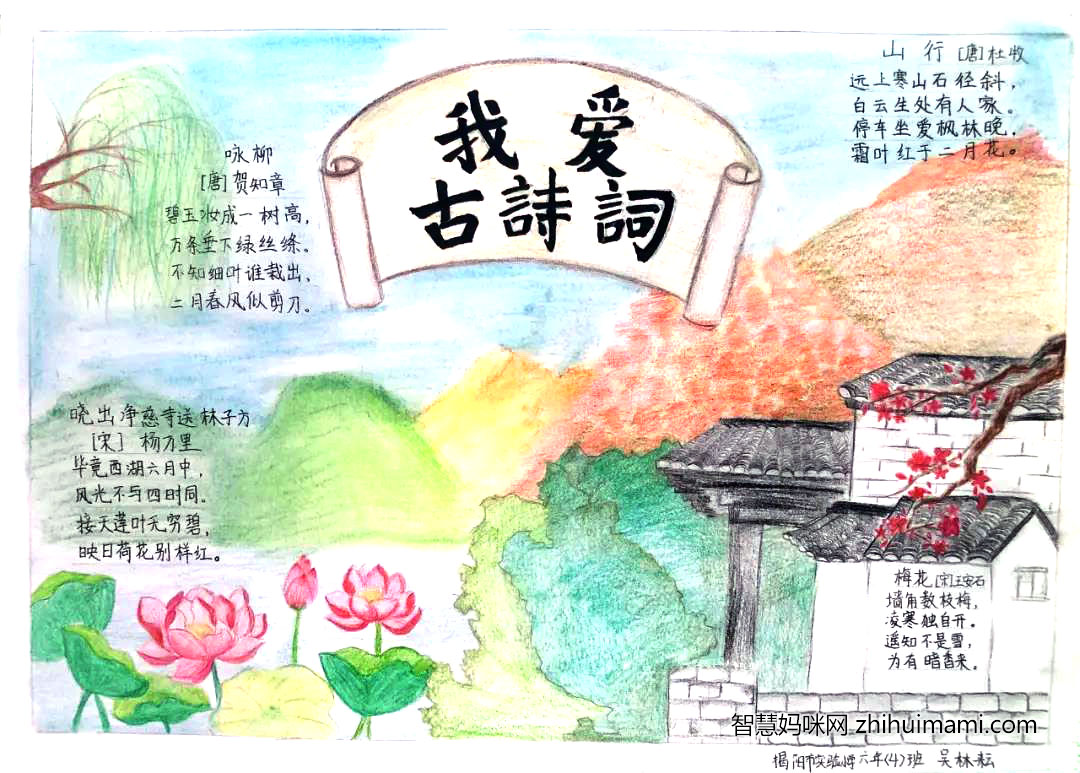 我 爱
古 詩 詞
山 行 [唐]杜牧
远上寒山石径斜，
白云生处有人家。
停车坐爱枫林晚，
霜叶红于二月花。
咏柳
[唐]贺知章
碧玉妆成一树高，
万条垂下绿丝绦。
不知细叶谁裁出，
二月春风似剪刀。
晓出净慈寺送林子方
[宋] 杨万里
毕竟西湖六月中，
风光不与四时同。
接天莲叶无穷碧，
映日荷花别样红。
梅花 [宋]王安石
墙角数枝梅，
凌寒独自开。
遥知不是雪，
为有暗香来。
智慧妈咪网 zhihuimami.com
揭阳市实验 六年(4)班 吴林耘